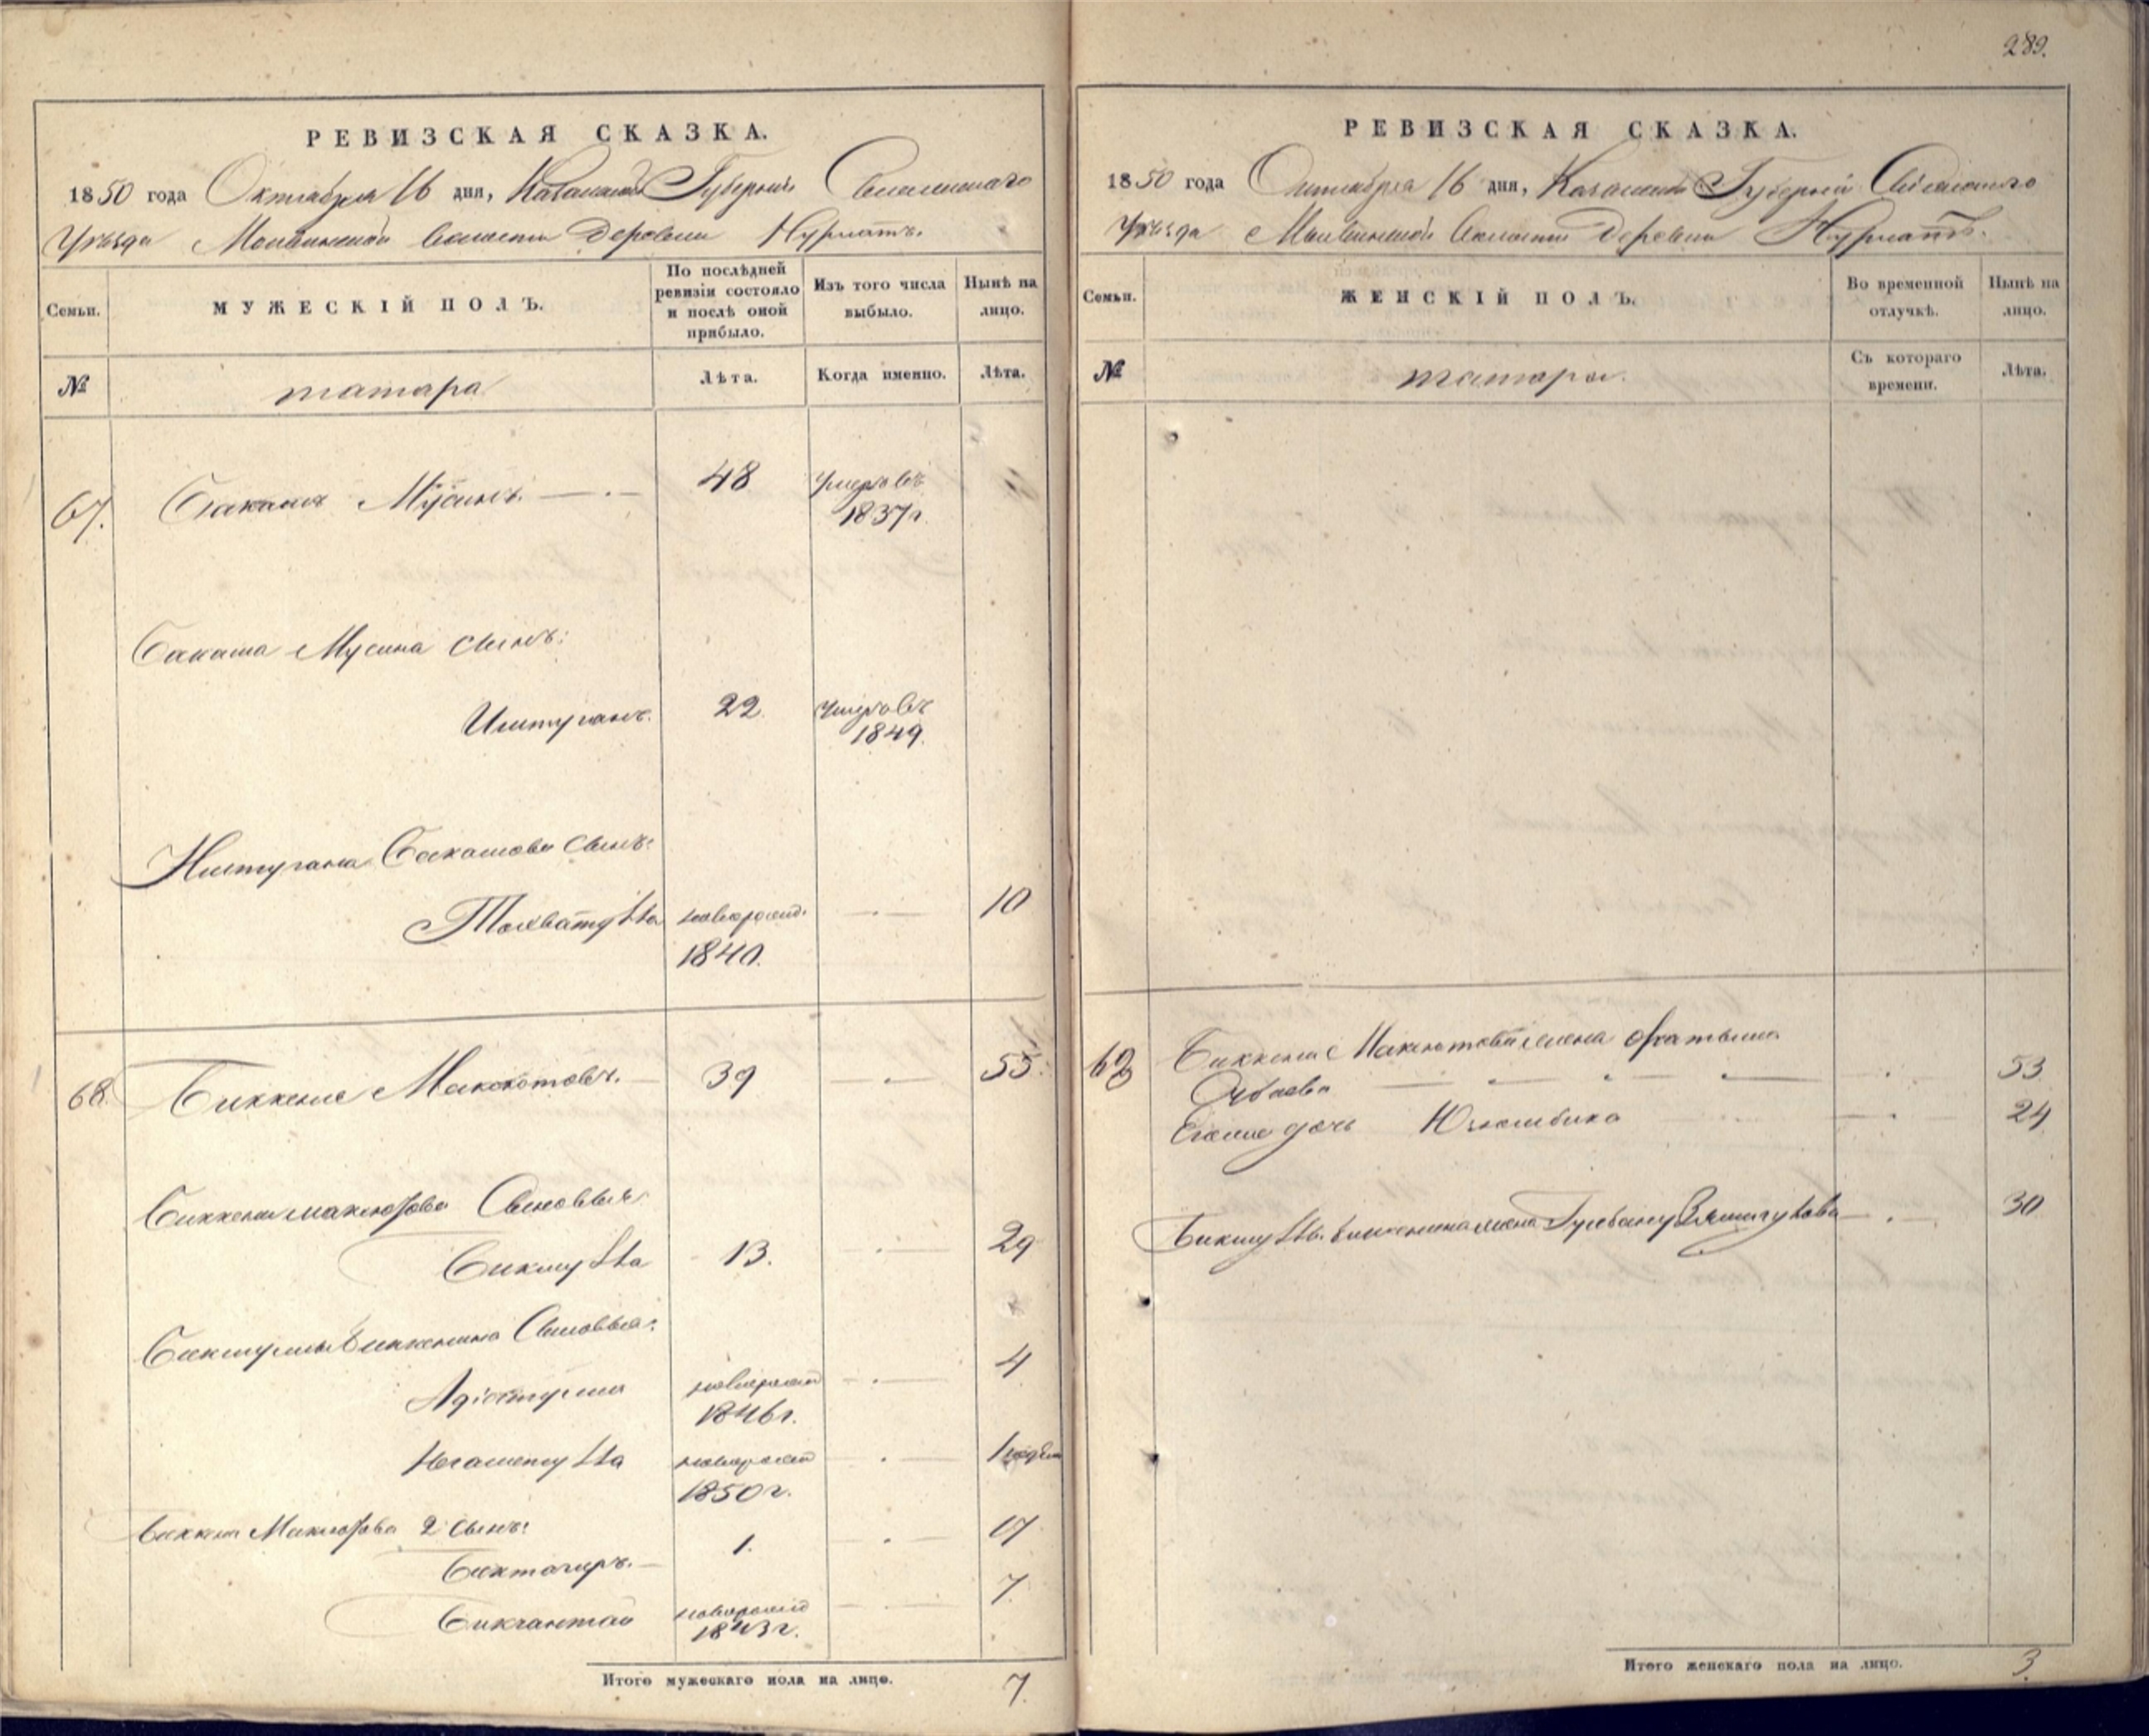 РЕВИЗСКАЯ СКАЗКА.
1850 года Октября 16 дня, Казанской Губерніи Свіяжскаго
Уѣзда Молвинской Волости Деревни Нурлатъ.
Семьи.
МУЖЕСКІЙ ПОЛЪ.
По послѣдней ревизіи состояло и послѣ оной прибыло.
Изъ того числа выбыло.
Нынѣ на лицо.
№
татара
Лѣта.
Когда именно.
Лѣта.
67. Бакашъ Мусинъ. 48 умеръ въ
1837 г.
Бакаша Мусина сынъ:
Иштуганъ. 22. умеръ въ
1849.
Иштугана Бакашова сынъ:
новорожд. 10
1840.
68. Биккеня Максютовъ. 39 55.
Биккени Максютова Сыновья:
Бикмулла 13. 29
Бикмуллы Биккенина Сыновья:
новорожд 4
1846 г.
Негаметулла новорожд 1 недѣл
1850 г.
Биккени Максютова 2 сынъ:
Биктагиръ. 1. 17
Бикчантай новорожд 7.
1843 г.
Итого мужескаго пола на лицо. 7.
289.
РЕВИЗСКАЯ СКАЗКА.
1850 года Октября 16 дня, Казанской Губерніи Свіяжскаго
Уѣзда Молвинской Волости Деревни Нурлатъ.
Семьи.
ЖЕНСКІЙ ПОЛЪ.
Во временной отлучкѣ.
Нынѣ на лицо.
№
татары.
Съ котораго времени.
Лѣта.
68 Биккени Максютова жена Фатыма
53
Егоже дочь Юзюмбика 24
Бикмуллы Биккенина жена 30
Итого женскаго пола на лицо. 3.